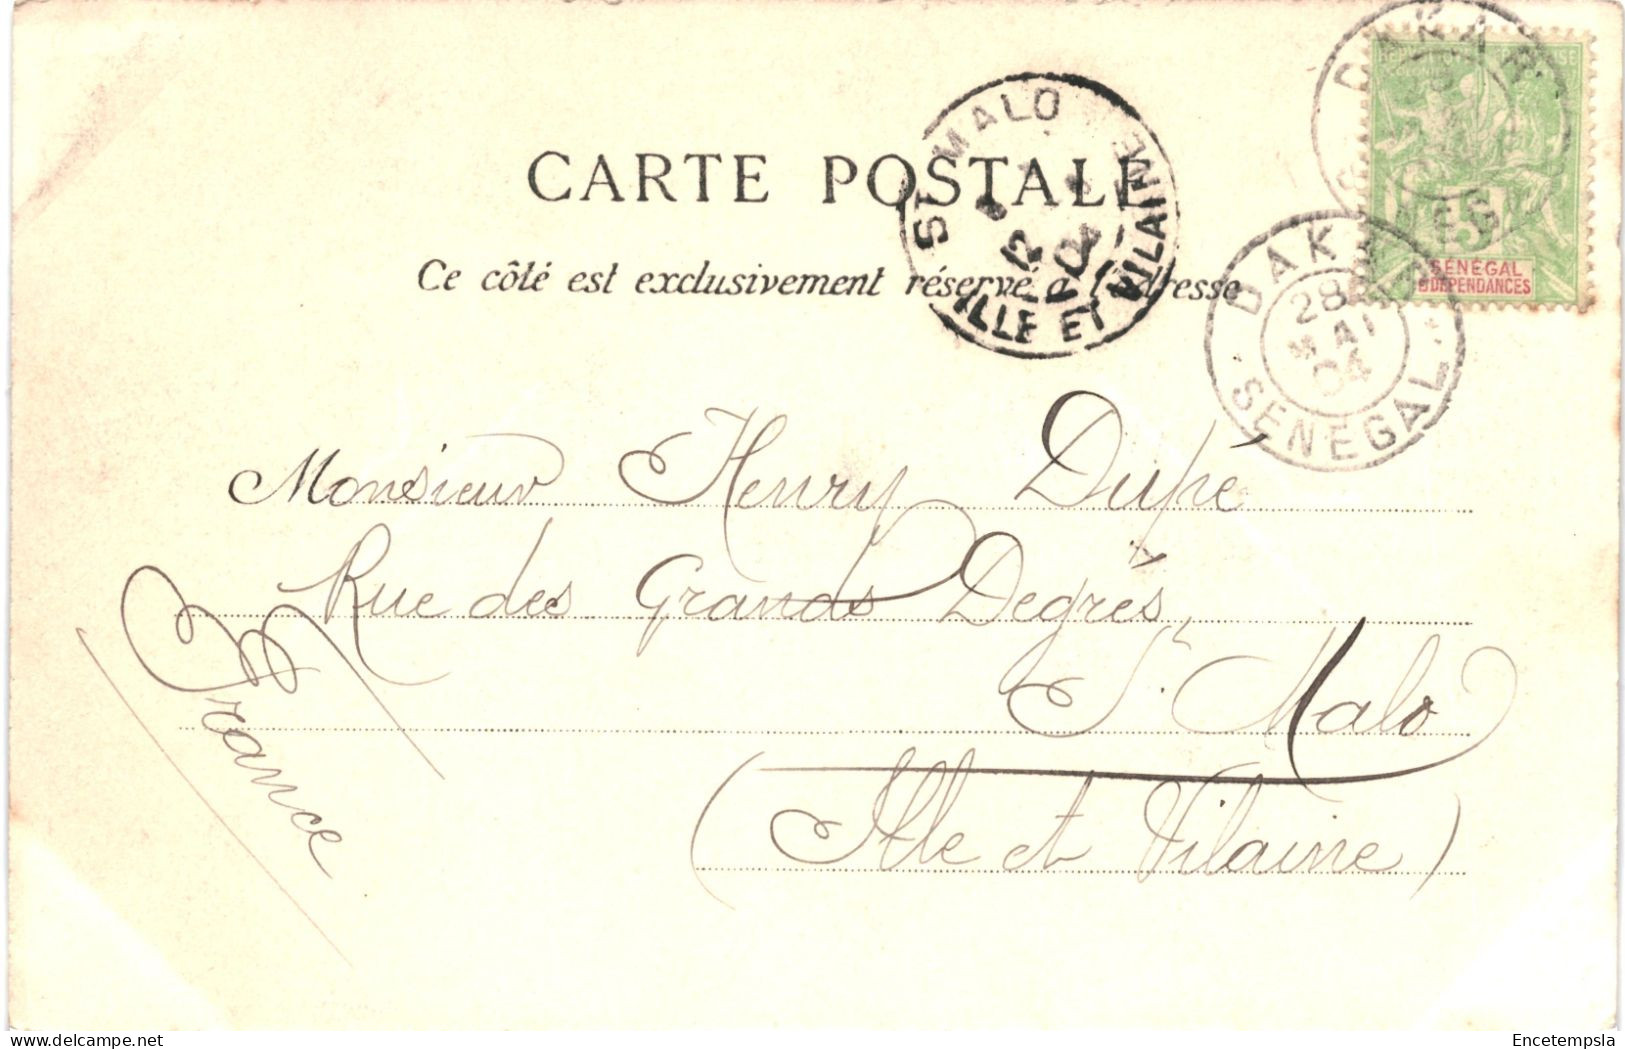 CARTE POSTALE
Ce côté est exclusivement réservé à l'adresse
ST MALO
ILLE ET VILAINE
12
04
DAKAR
DAKAR
28
MAI
04
SENEGAL
5
SÉNÉGAL
& DÉPENDANCES
Monsieur Henry Dupé
Rue des Grands Degrés,
St. Malo
(Ille et Vilaine)
France
Encetempsla